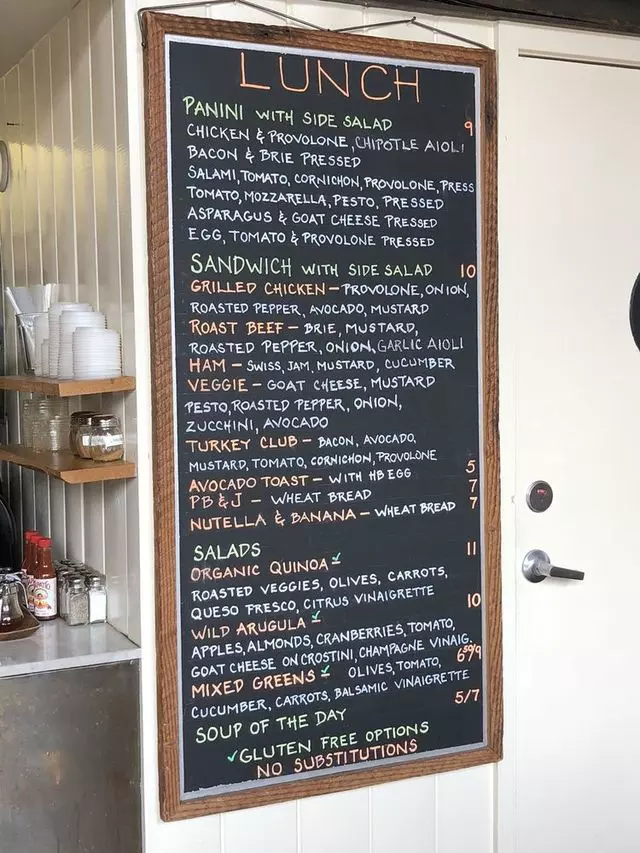 LUNCH
PANINI WITH SIDE SALAD 9
CHICKEN & PROVOLONE, CHIPOTLE AIOLI
BACON & BRIE PRESSED
SALAMI, TOMATO, CORNICHON, PROVOLONE, PRESS
TOMATO, MOZZARELLA, PESTO, PRESSED
ASPARAGUS & GOAT CHEESE PRESSED
EGG, TOMATO & PROVOLONE PRESSED
SANDWICH WITH SIDE SALAD 10
GRILLED CHICKEN - PROVOLONE, ONION,
ROASTED PEPPER, AVOCADO, MUSTARD
ROAST BEEF - BRIE, MUSTARD,
ROASTED PEPPER, ONION, GARLIC AIOLI
HAM - SWISS, JAM, MUSTARD, CUCUMBER
VEGGIE - GOAT CHEESE, MUSTARD
PESTO, ROASTED PEPPER, ONION,
ZUCCHINI, AVOCADO
TURKEY CLUB - BACON, AVOCADO,
MUSTARD, TOMATO, CORNICHON, PROVOLONE
AVOCADO TOAST - WITH HB EGG 5
PB & J - WHEAT BREAD 7
NUTELLA & BANANA - WHEAT BREAD 7
SALADS
ORGANIC QUINOA ✓ 11
ROASTED VEGGIES, OLIVES, CARROTS,
QUESO FRESCO, CITRUS VINAIGRETTE
WILD ARUGULA ✓ 10
APPLES, ALMONDS, CRANBERRIES, TOMATO,
GOAT CHEESE ON CROSTINI, CHAMPAGNE VINAIG.
MIXED GREENS ✓ OLIVES, TOMATO, 6⁵⁰/9
CUCUMBER, CARROTS, BALSAMIC VINAIGRETTE
SOUP OF THE DAY 5/7
✓GLUTEN FREE OPTIONS
NO SUBSTITUTIONS